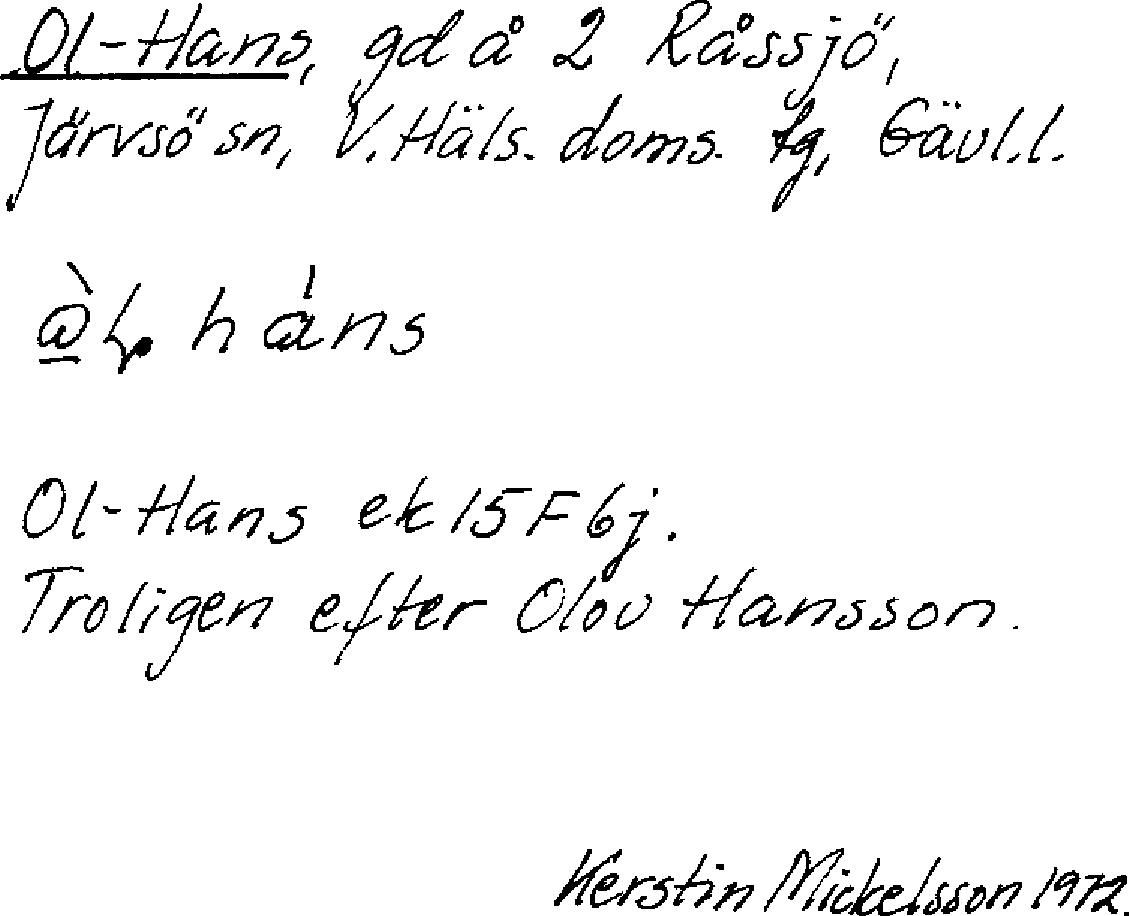 Ol-Hans, gd å 2 Råssjö,
Järvsö sn, V. Häls. doms. tg, Gävl.l.
hans
Ol-Hans ek 15 F 6j.
Troligen efter Olov Hansson.
Kerstin Mickelsson 1972.